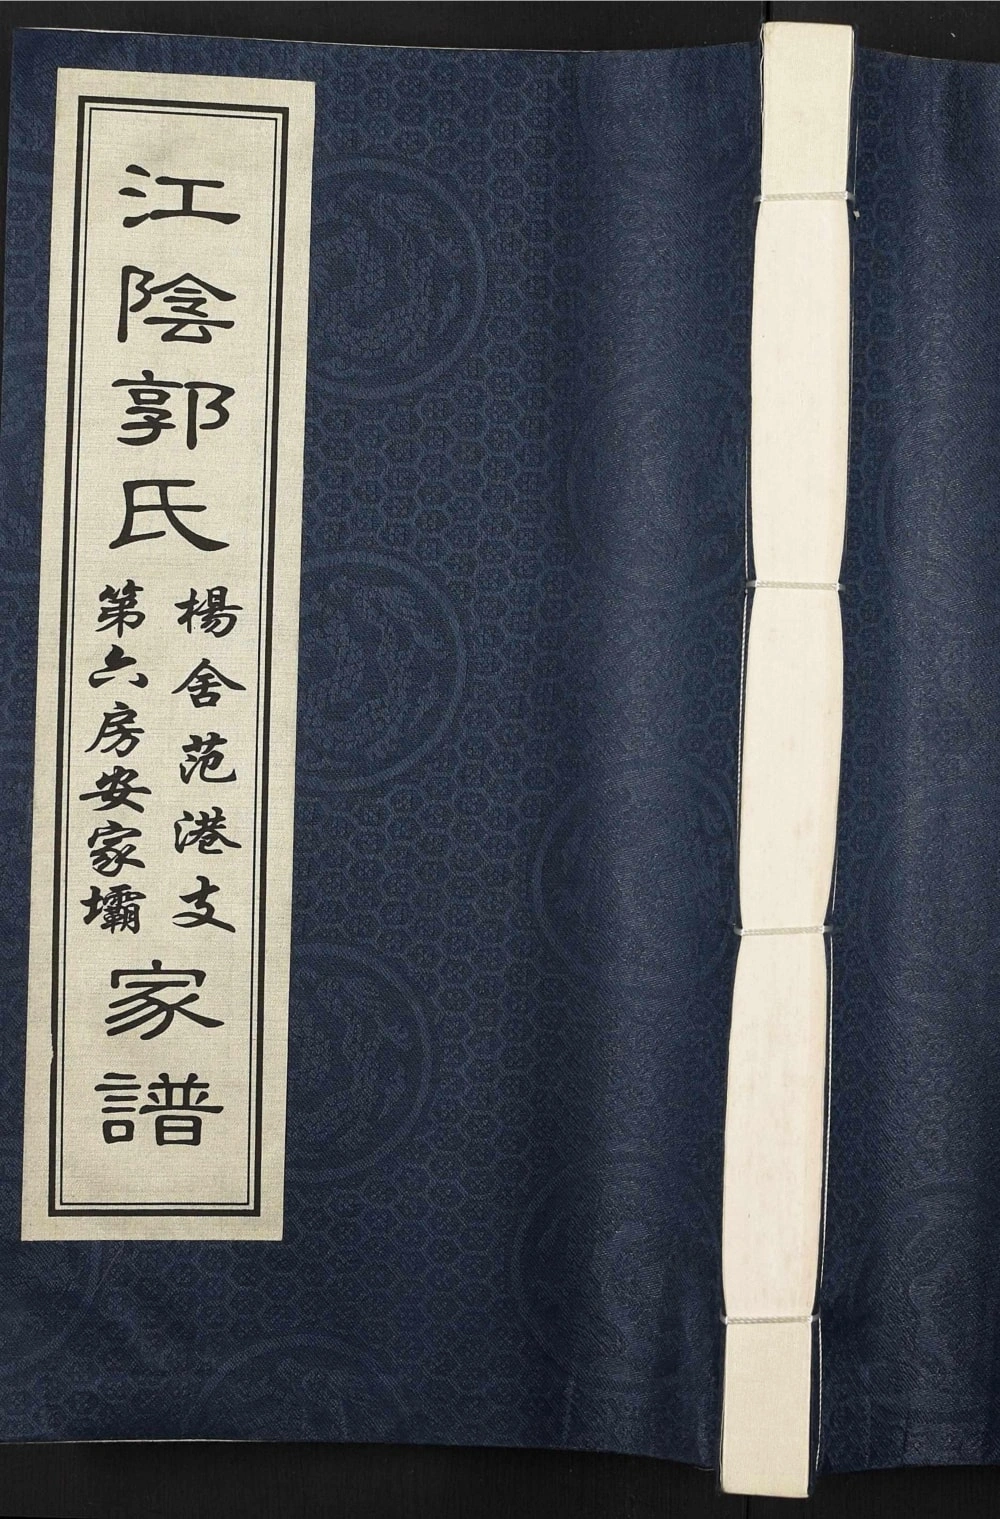 江陰郭氏
楊舍范港支
第六房安家壩
家譜